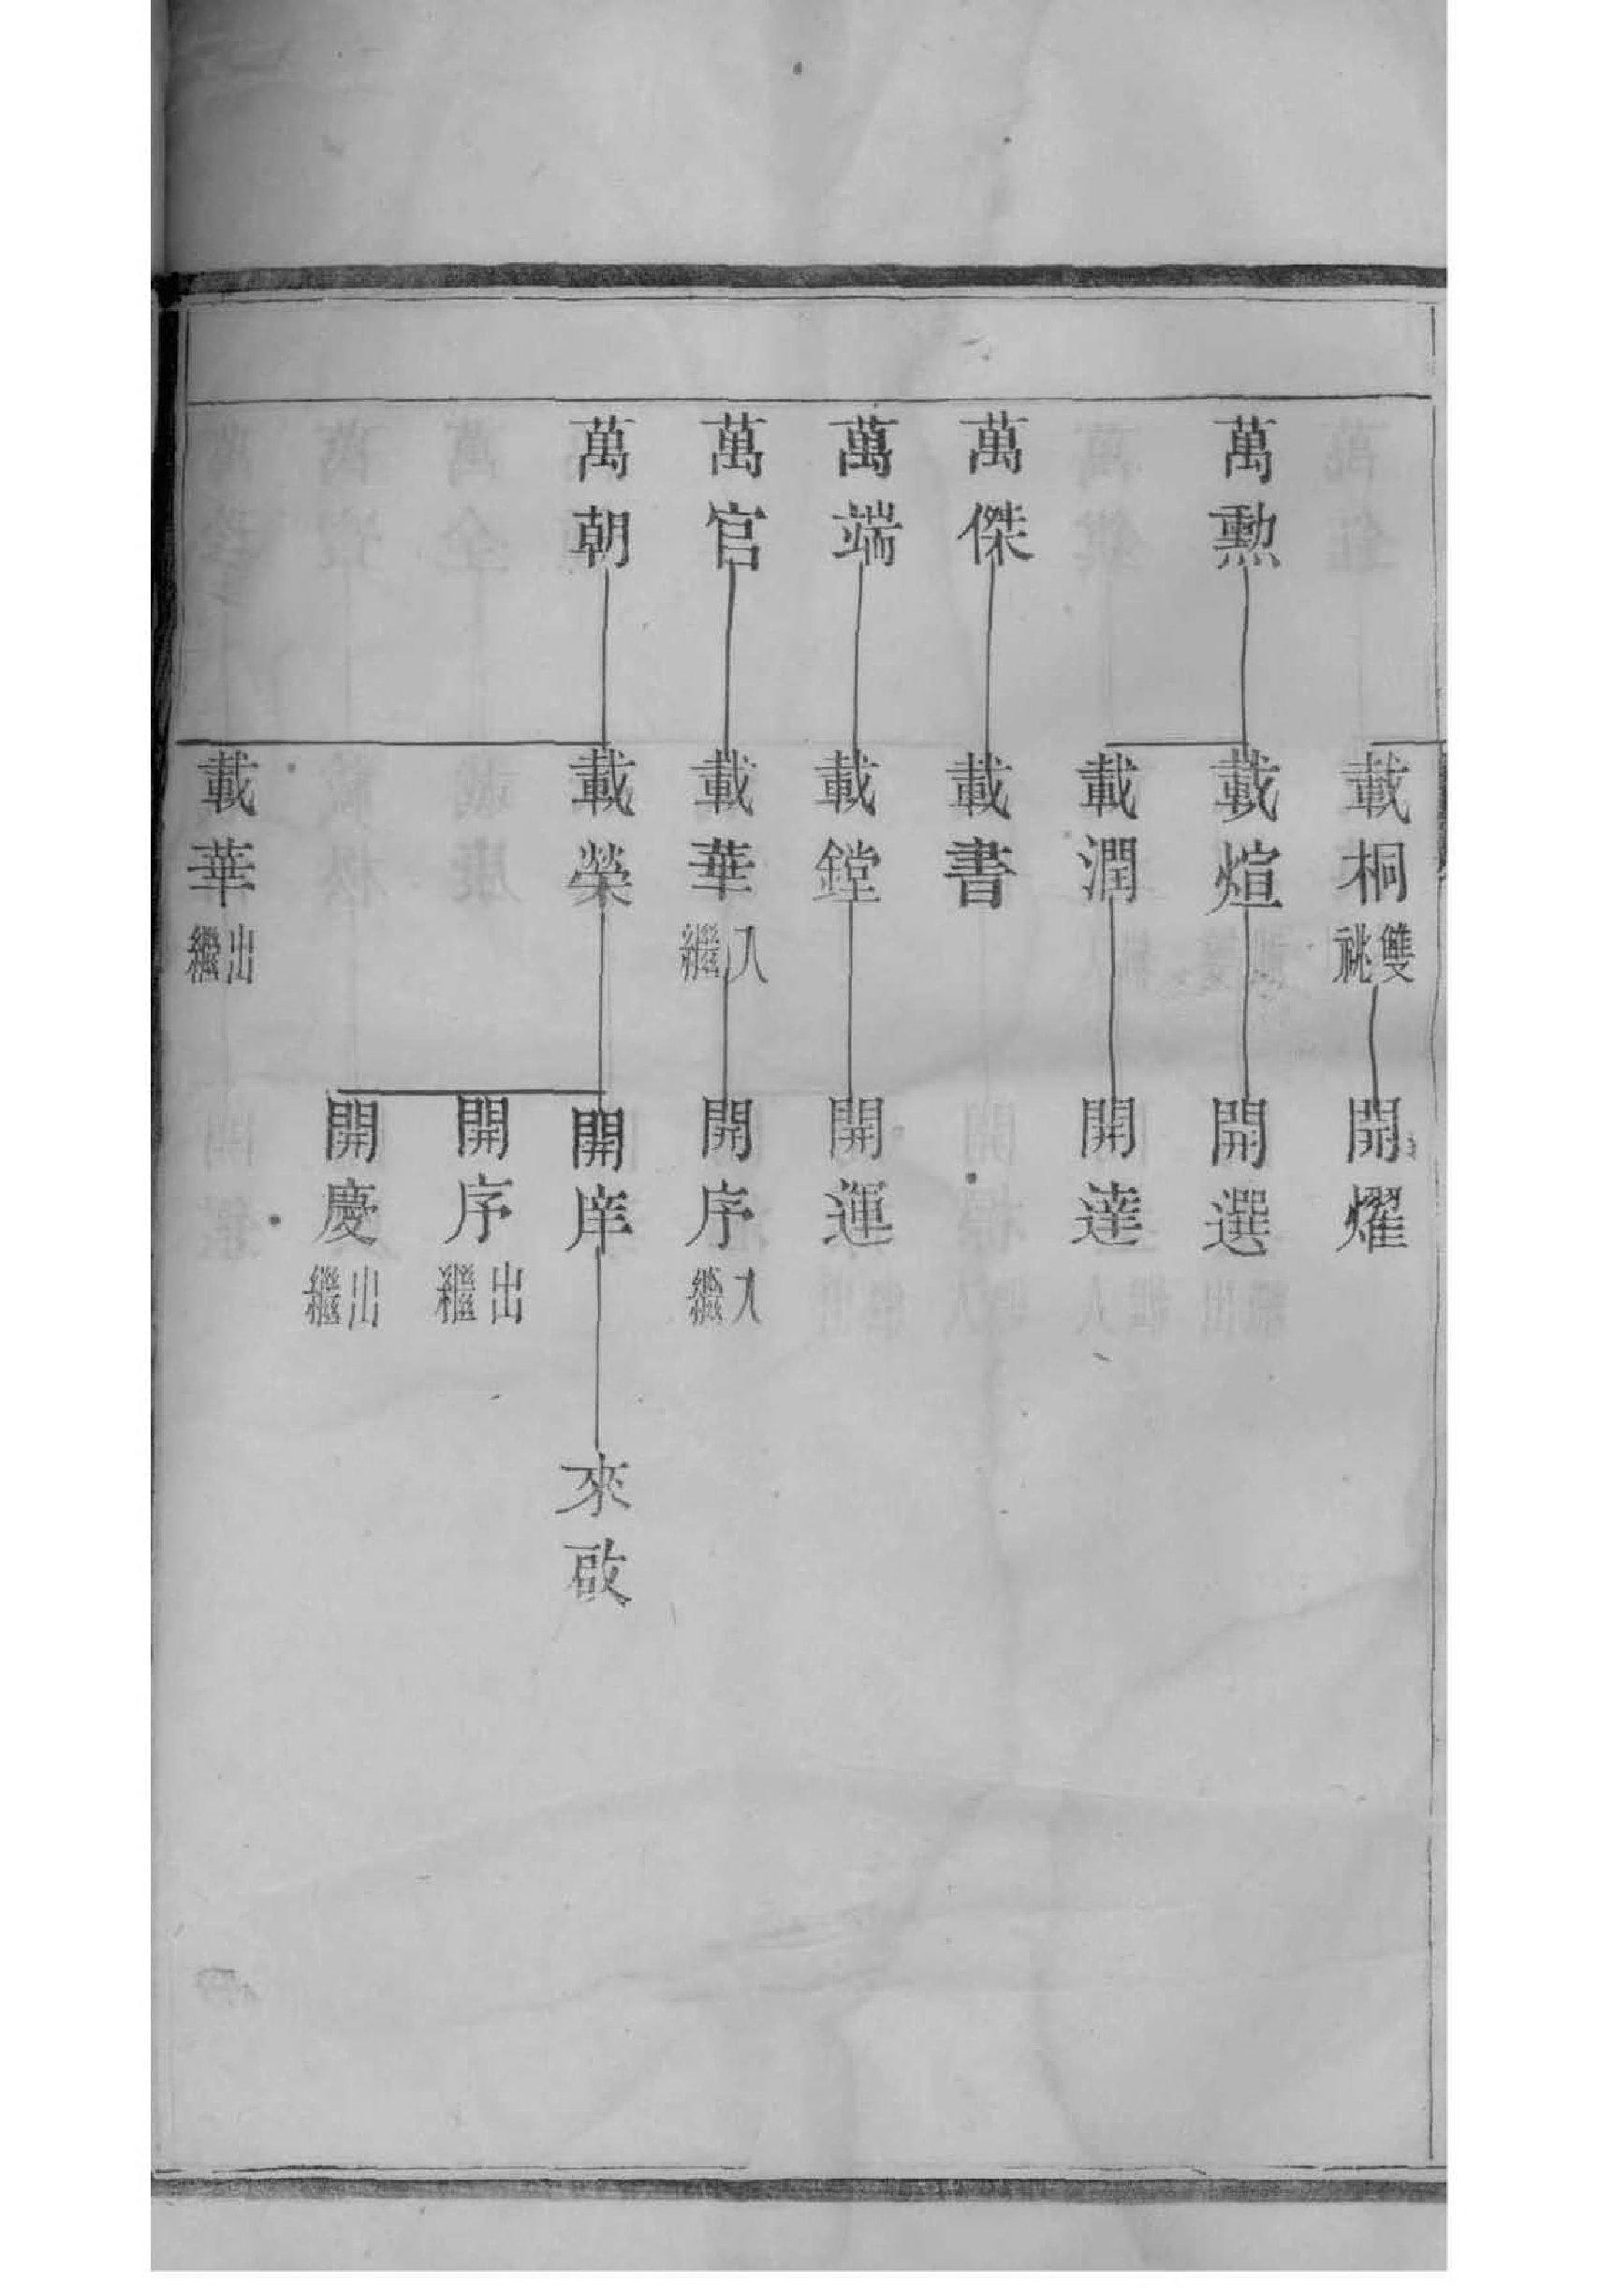 載桐雙祧
開燿
萬勲
載煊
開選
載潤
開達
萬傑
載書
萬端
載鏜
開運
萬官
載華入繼
開序入繼
萬朝
載榮
開庠
來啟
開序出繼
開慶出繼
載華出繼